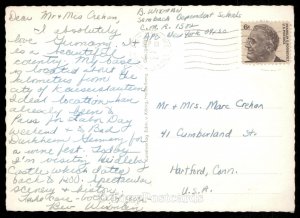 Dear Mr + Mrs Crehan,
I absolutely
love Germany, it
is a beautiful
country. My base
is located about 8
kilometers from the
city of Kaiserslautern.
Ideal location. Have
already been a
Paris for Labor Day
Weekend + to Bad
Durkheim, German
for a wine fest. Today
I'm visiting Heidelberg
Castle which dates
back to 1200. Spectacular
scenery + history.
Take care - both of you
Bev
B. Wieman
Sembach Dependent Schools
APO New York
6¢
Mr + Mrs. Marc Crehan
41 Cumberland St.
Hartford, Conn.
U.S.A.